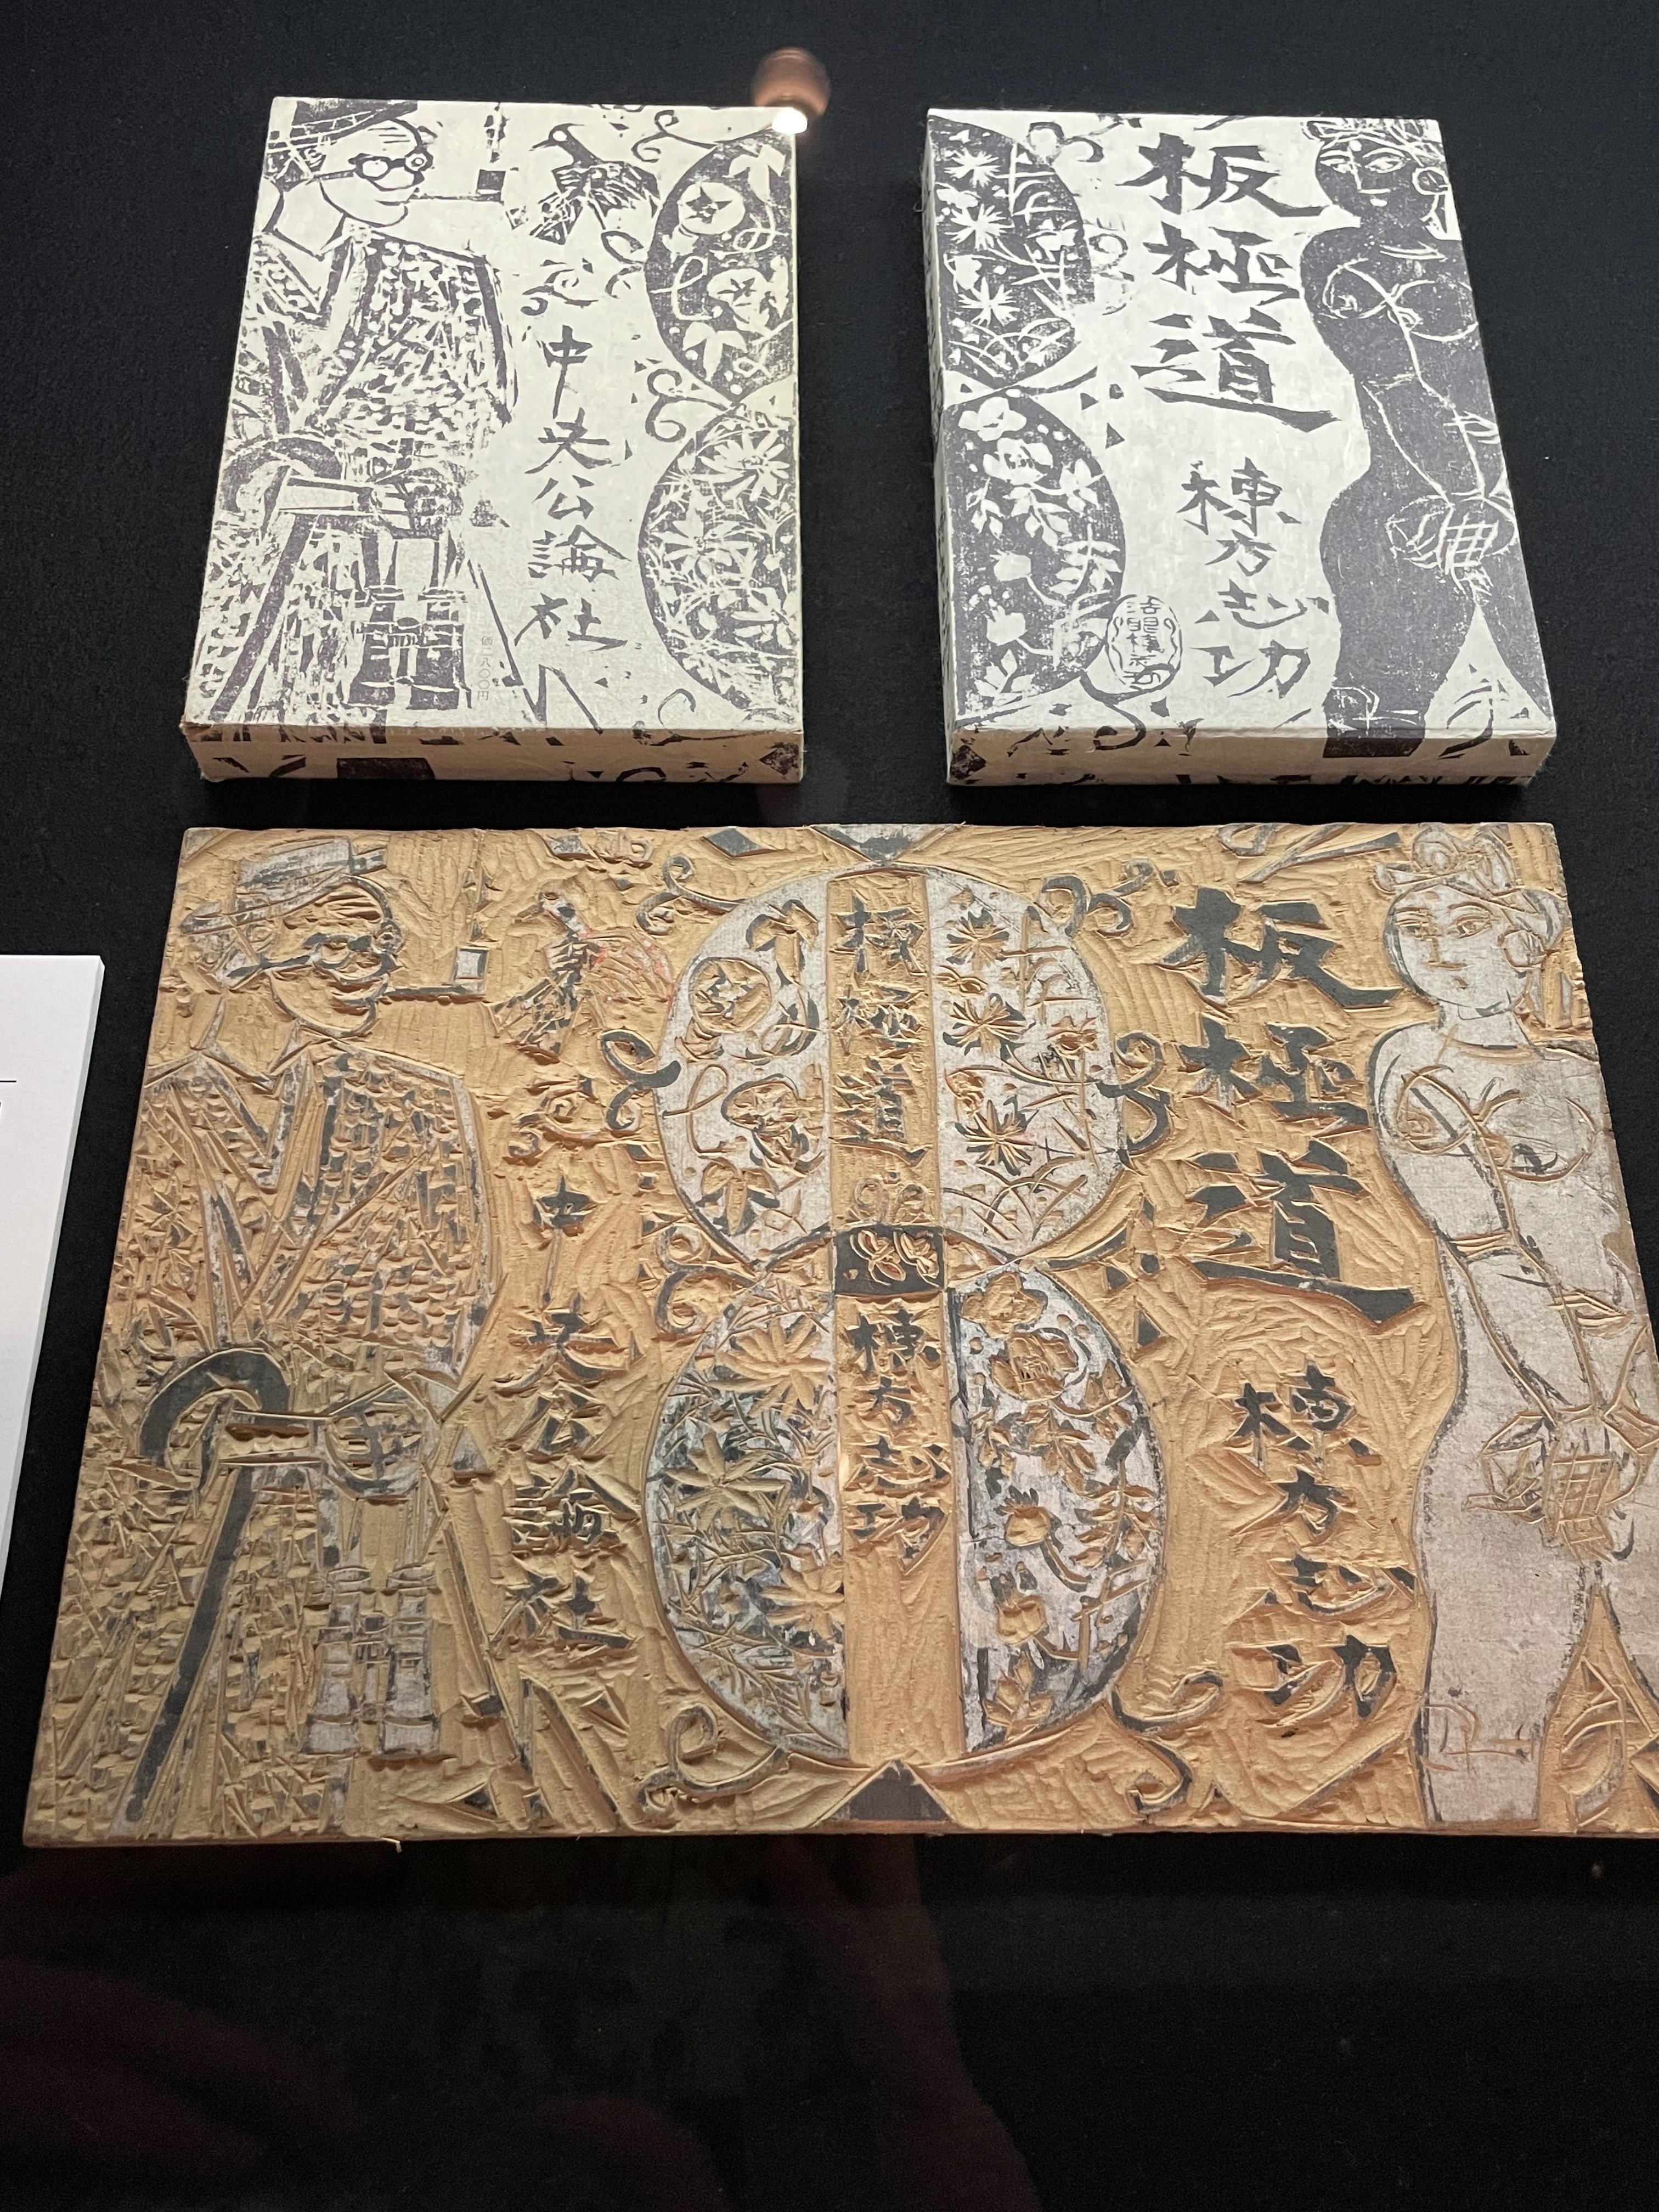 中央公論社
価一八〇〇円
板極道
棟方志功
中央公論社
板極道
棟方志功
板極道
棟方志功